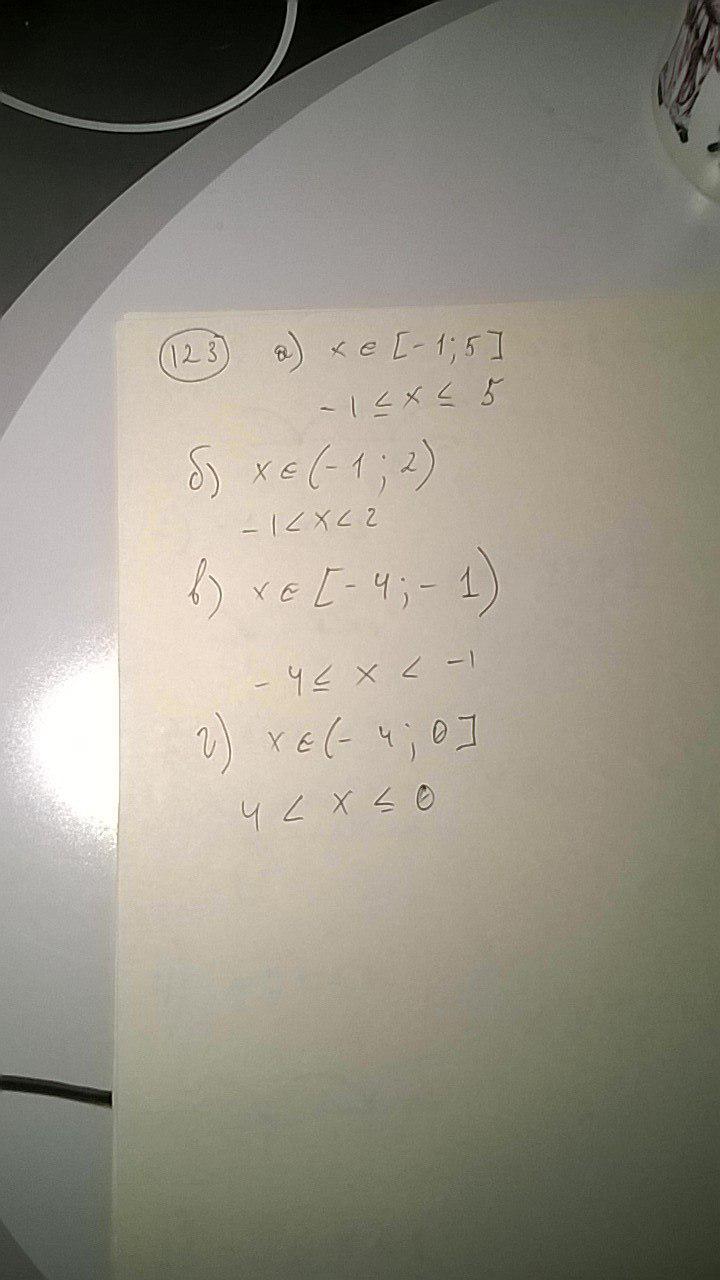 123 а) x ∈ [-1;5]
-1 ≤ x ≤ 5
б) x ∈ (-1; 2)
-1 < x < 2
в) x ∈ [-4; -1)
-4 ≤ x < -1
г) x ∈ (-4; 0]
4 < x ≤ 0